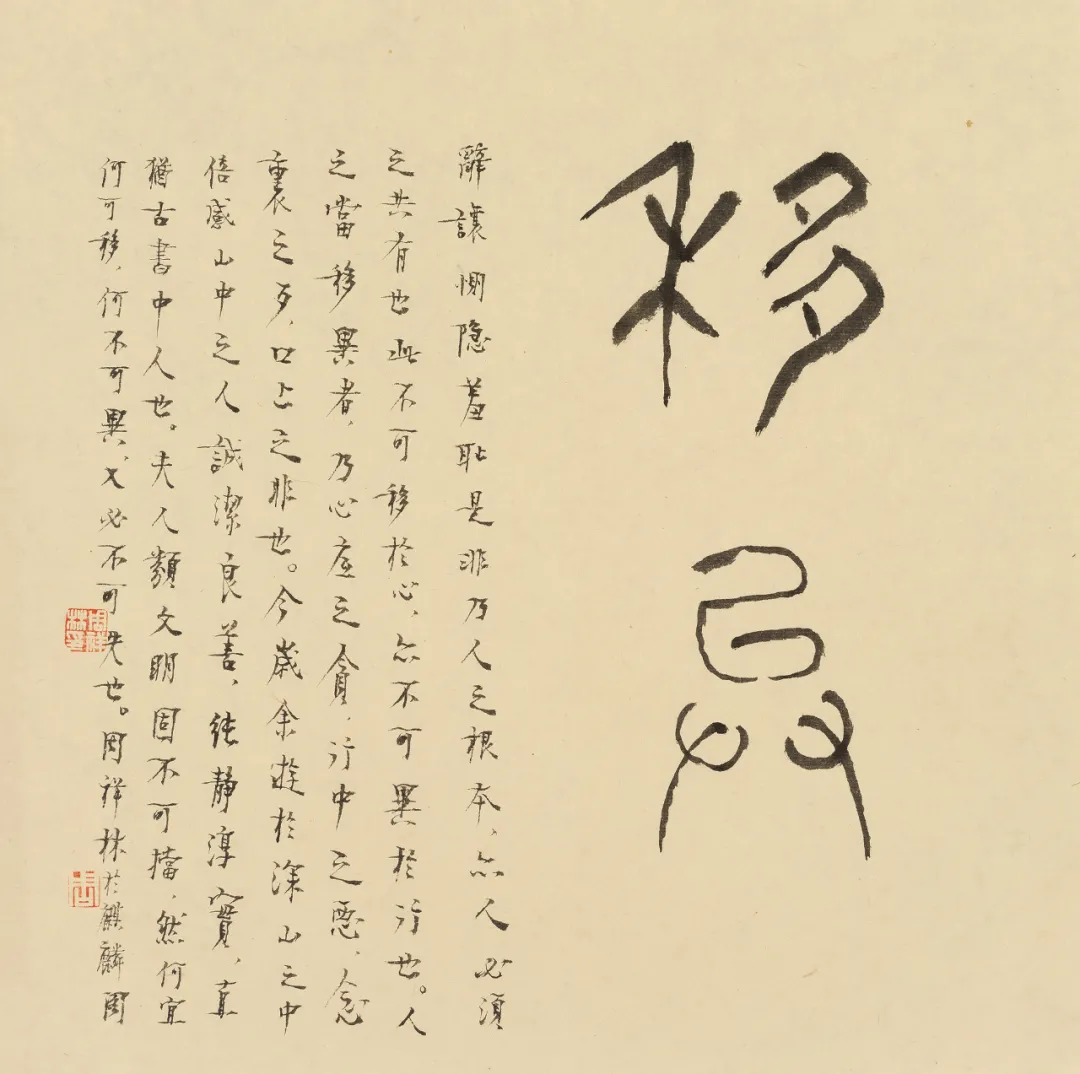 移异
辭讓惻隐羞恥是非乃人之根本、亦人必須
之共有也此不可移於心、亦不可異於行也。人
之當移異者、乃心底之貪、行中之惡、念
裏之歹、口上之非也。今歲余遊於深山之中
倍感山中之人誠潔良善、純靜淳實、真
猶古書中人也。夫人類文明固不可擋、然何宜
何可移、何不可異、又必不可失也。周祥林於麒麟
周祥林